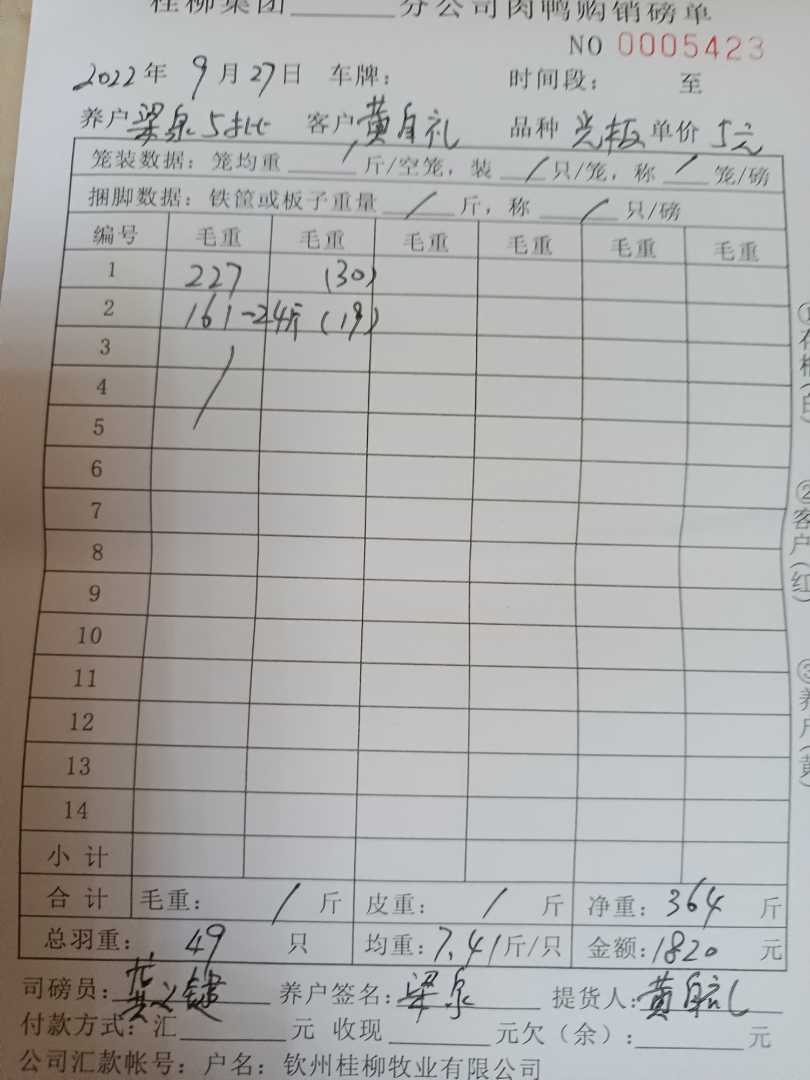 桂柳集团______分公司肉鸭购销磅单
NO 0005423
2022年 9月27日 车牌: 时间段: 至
养户梁泉5批 客户黄自礼 品种 光板 单价 5元
笼装数据: 笼均重 / 斤/空笼, 装 / 只/笼, 称 / 笼/磅
捆脚数据: 铁筐或板子重量 / 斤, 称 / 只/磅
编号 毛重 毛重 毛重 毛重 毛重 毛重
1 227 (30)
2 161-24斤 (19)
3 /
4
5
6
7
8
9
10
11
12
13
14
小 计
合 计 毛重: / 斤 皮重: / 斤 净重: 364 斤
总羽重: 49 只 均重: 7.41斤/只 金额: 1820 元
司磅员: 养户签名: 梁泉 提货人: 黄自礼
付款方式: 汇______元 收现______元欠(余):______元
公司汇款帐号: 户名: 钦州桂柳牧业有限公司
②客户(红)
③养户(黄)